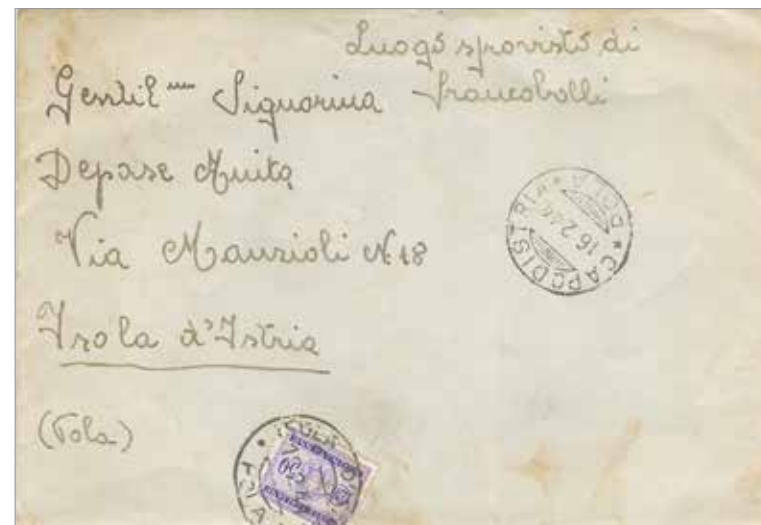 Luogo sprovisto di
francobolli
Gentil Signorina
Depase Anita
Via Manzioli N. 18
Isola d'Istria
(Pola)
CAPODISTRIA * POLA *
16.2.44
ISOLA D
50